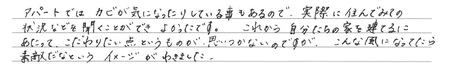 アパートでは カビが気になったりしている事もあるので、実際に住んでみての
状況などを聞くことができ よかったです。 これから 自分たちの家を建てるに
あたって、こだわりたい点というものが、思いつかないのですが、 こんな風になってたら
素敵だなという イメージが わきました。